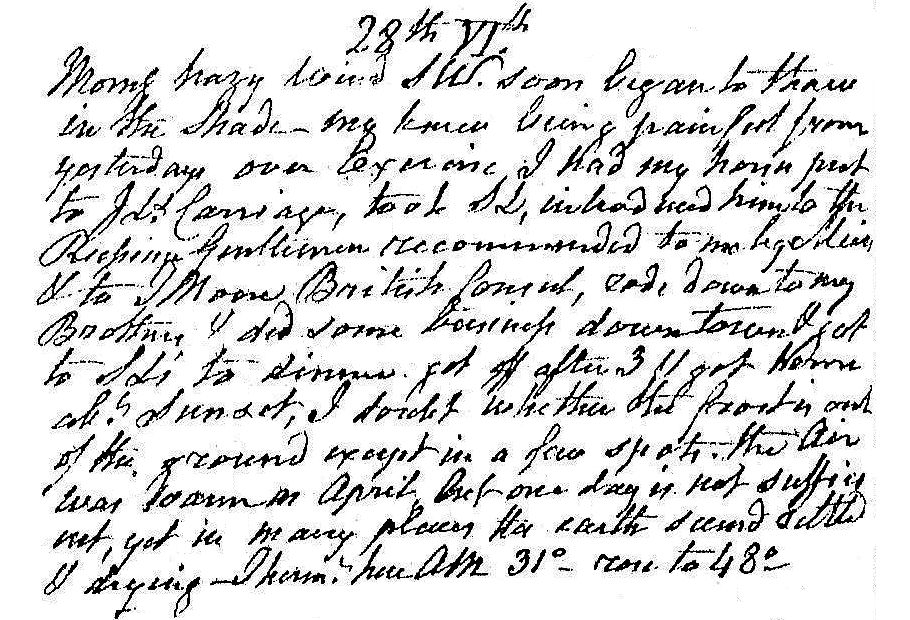 28th VI.th
Morng hazy Wind SW. soon began to thaw
in the Shade - my knee being painful from
yesterdays over Exercise I had my horse put
to Carriage, took SL, introduced him to the
Gentlemen recommended to me by
& to J Moore British Consul, rode down to my
Brothers & did some business down town & got
to SLs to dinner got off after 3 & got home
abt Sunset, I doubt whether the frost is out
of the ground except in a few spots. the Air
was warm as April, but one day is not suffici
ent, yet in many places the earth seemd settled
& drying - Thermr here AM 31° - rose to 48°